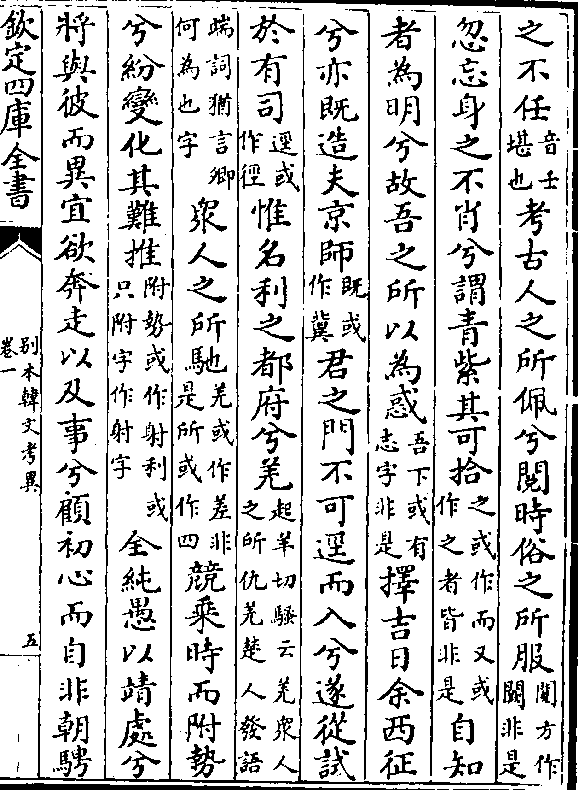 之不任音壬堪也考古人之所佩兮閱時俗之所服閱方作闕非是
忽忘身之不肖兮謂青紫其可拾之或作而又或作之者皆非是自知
者為明兮故吾之所以為惑吾下或有志字非是擇吉日余西征
兮亦既造夫京師既或作冀君之門不可逕而入兮遂從試
於有司逕或作徑惟名利之都府兮羌起羊切騷云羌衆人之所仇羌楚人發語
端詞猶言卿何為也字衆人之所馳羌或作差非是所或作四競乘時而附勢
兮紛變化其難推附勢或作射利或只附字作射字全純愚以靖處兮
將與彼而異宜欲奔走以及事兮顧初心而自非朝騁
欽定四庫全書
别本韓文考異
卷一
五